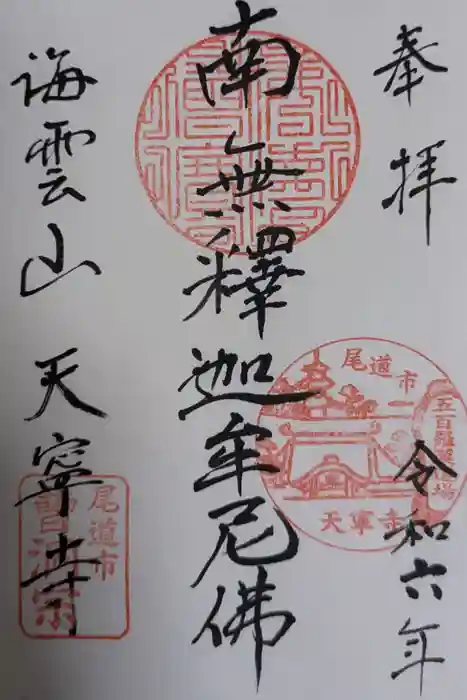 奉拝
令和六年
南無釋迦牟尼佛
海雲山 天寧寺
尾道市
五百羅漢道場
天寧寺
尾道市
曹洞宗